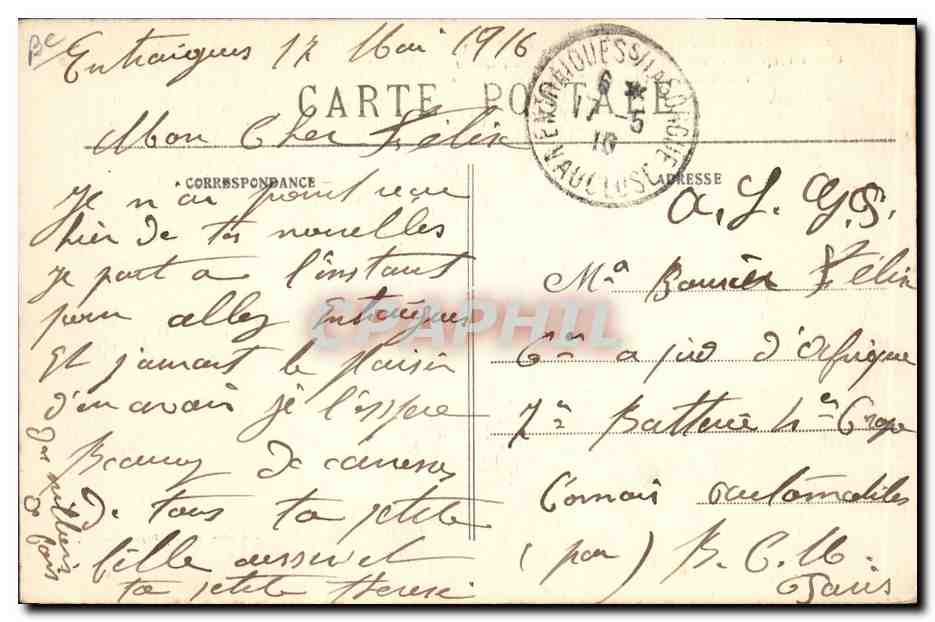 Entraigues 17 Mai 1916
CARTE POSTALE
ENTRAIGUES S/LA SORGUE
6 *
17 -5
16
VAUCLUSE
Mon Cher Félix
CORRESPONDANCE
Je n'ai point reçu
hier de tes nouvelles
je part a l'instant
pour allez Entraigues
Et j'aurait le plaisir
d'en avoir je l'espère
De caresse
De tous ta petite
fille aussi et
ta petite Therese
par milliers
de fois
ADRESSE
Félix
a pied d'Afrique
Batterie 4e Group
automobiles
(par) B.C.M.
Paris
CPAPHIL